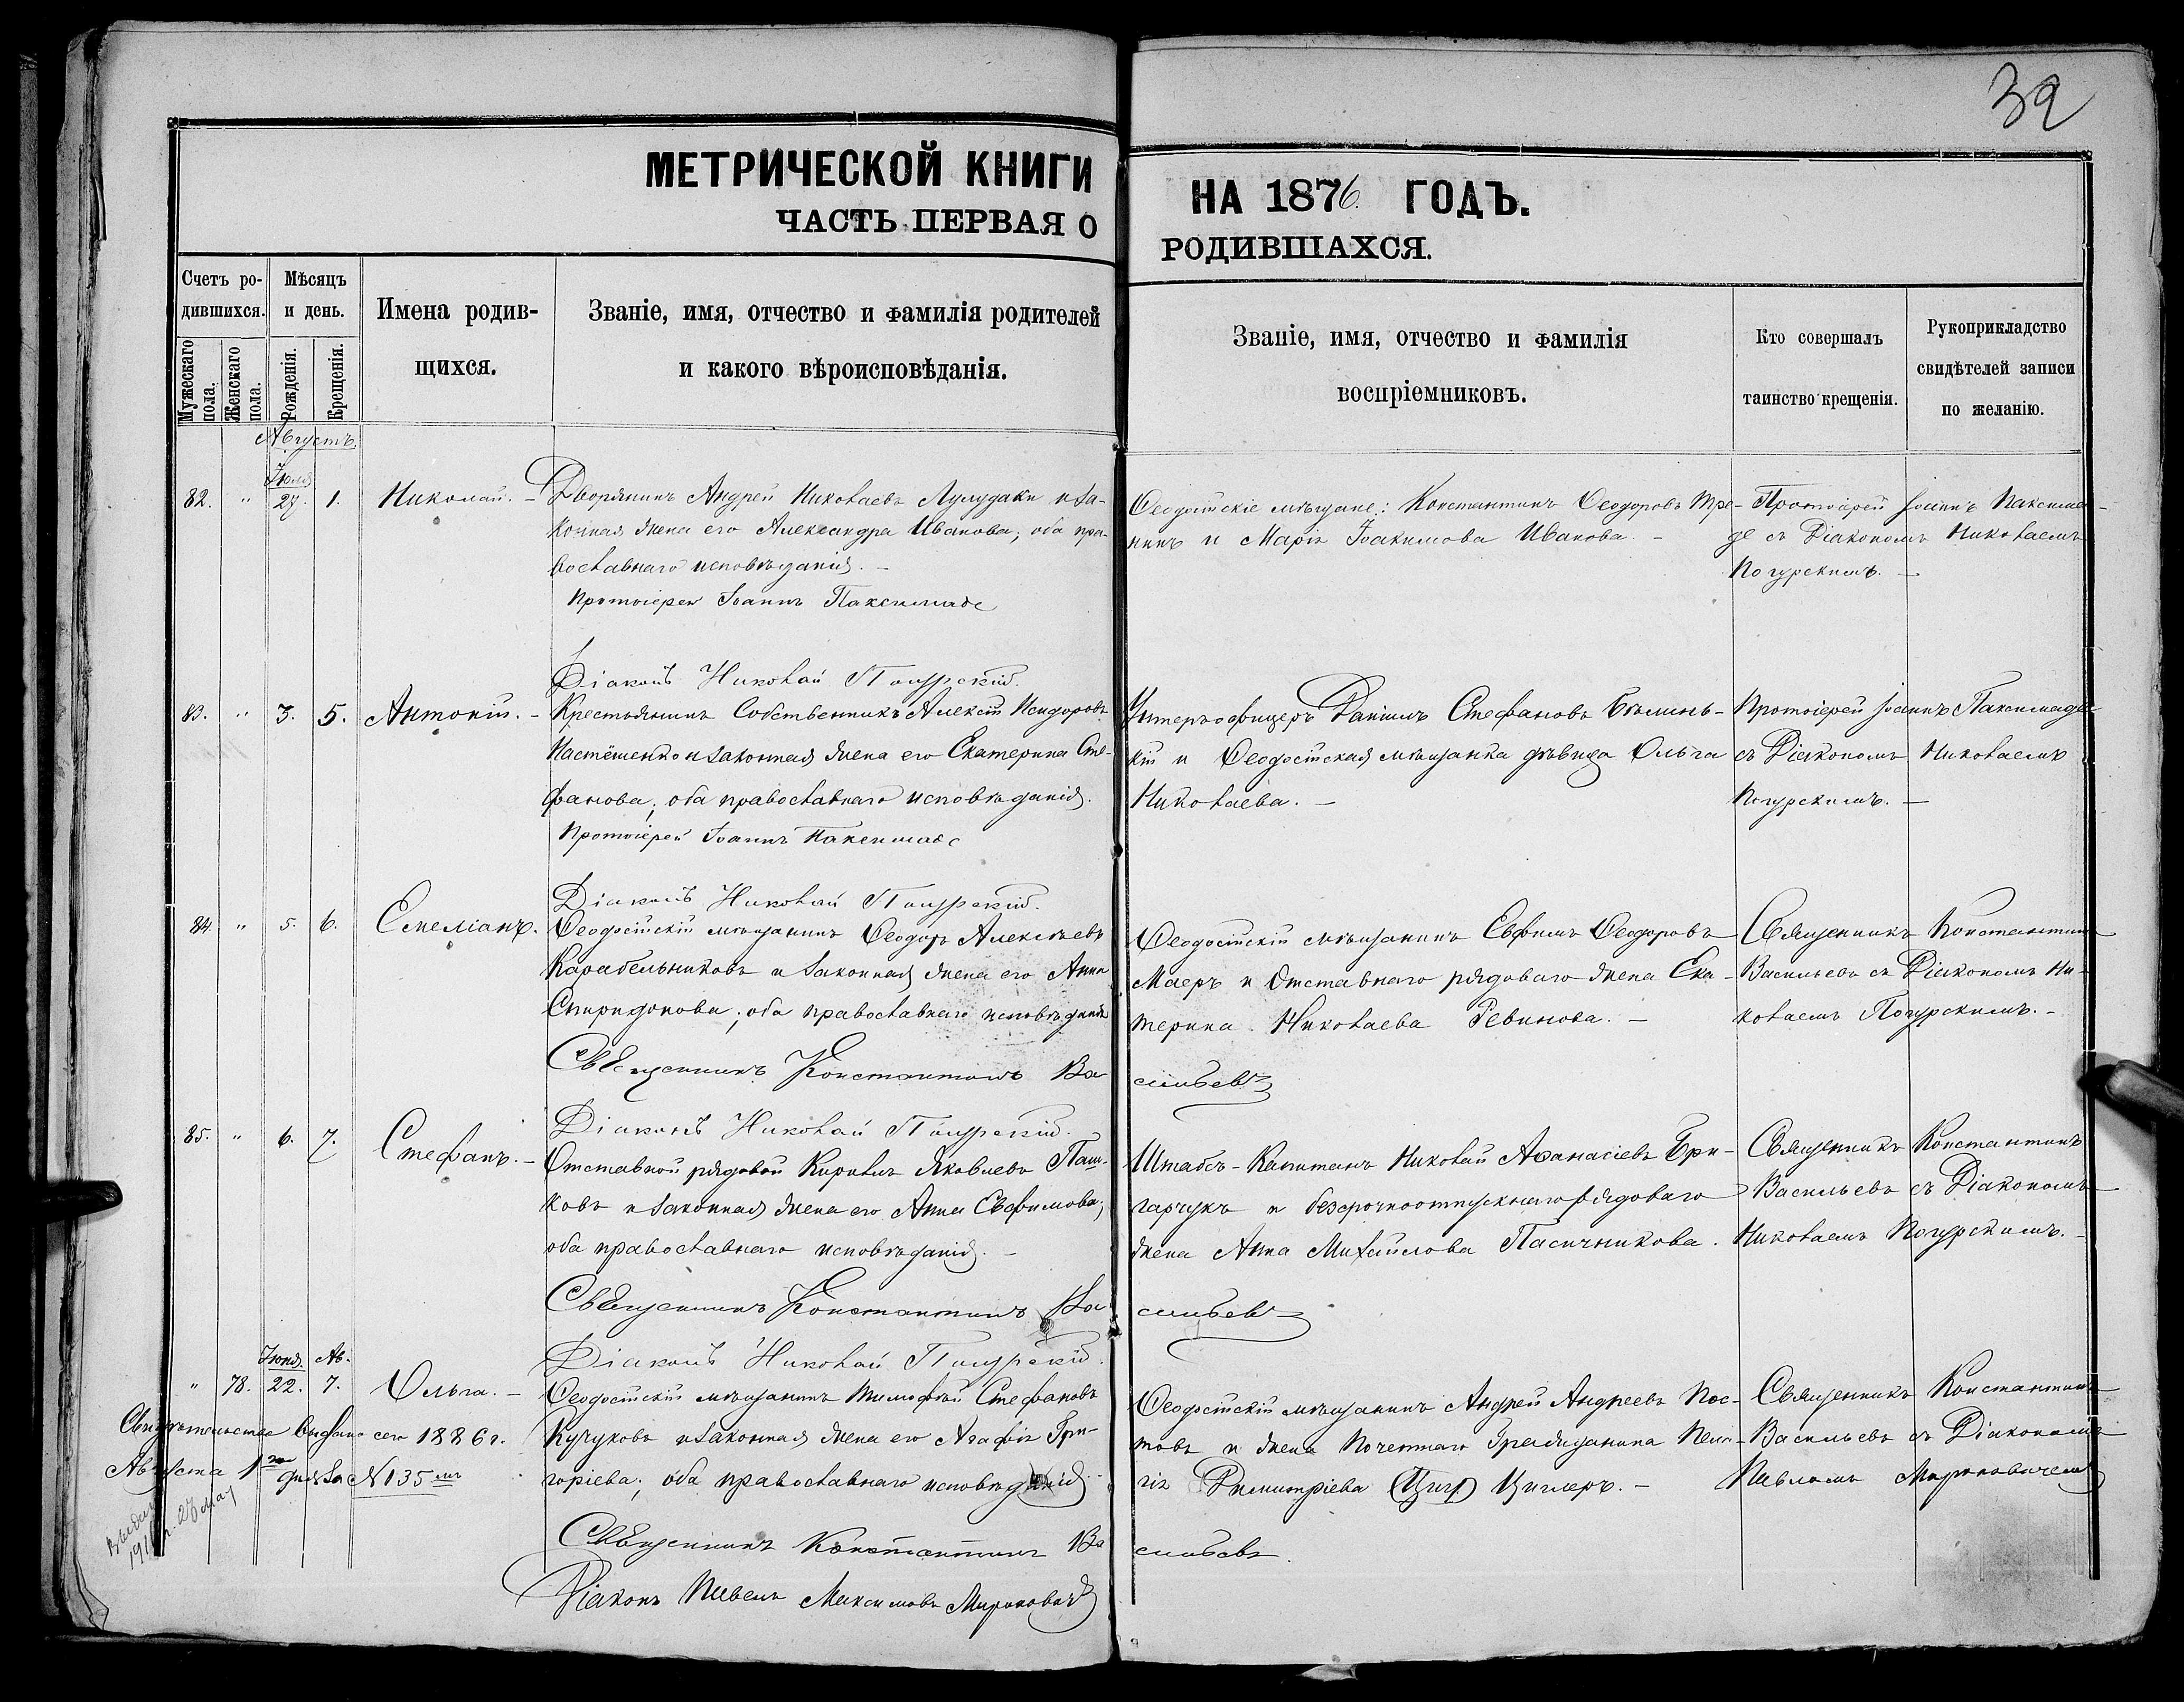 32
МЕТРИЧЕСКОЙ КНИГИ НА 1876 ГОДЪ.
ЧАСТЬ ПЕРВАЯ О РОДИВШАХСЯ.
Счетъ ро-
дившихся.
Мужескаго пола.
Женскаго пола.
Мѣсяцъ
и день.
Рожденія.
Крещенія.
Имена родив-
щихся.
Званіе, имя, отчество и фамилія родителей
и какого вѣроисповѣданія.
Званіе, имя, отчество и фамилія
воспріемниковъ.
Кто совершалъ
таинство крещенія.
Рукоприкладство
свидѣтелей записи
по желанію.
Августъ.
Іюля
82. " 27. 1. Николай. –
Дворянинъ Андрей Николаевъ Лулудаки и за-
конная жена его Александра Иванова, оба пра-
вославнаго исповѣданія. –
Протоіерей Іоаннъ Паксимаде
Діаконъ Николай Погурскій.
Ѳеодосійскіе мѣщане: Константинъ Ѳеодоровъ Тре-
нинъ и Марія Іоакимова Иванова. –
Протоіерей Іоаннъ Паксима-
де съ Діакономъ Николаемъ
Погурскимъ. –
83. " 3. 5. Антоній. –
Крестьянинъ Собственникъ Алексій Исидоровъ
Настёшенко и законная жена его Екатерина Сте-
фанова; оба православнаго исповѣданія.
Протоіерей Іоаннъ Паксимаде
Діаконъ Николай Погурскій.
Унтеръ-офицеръ Даніилъ Стефановъ Бѣлинь-
кій и Ѳеодосійская мѣщанка дѣвица Ольга
Николаева. –
Протоіерей Іоаннъ Паксимаде
съ Діакономъ Николаемъ
Погурскимъ. –
84. " 5. 6. Емеліанъ.
Ѳеодосійскій мѣщанинъ Ѳеодоръ Алексѣевъ
Карабельниковъ и законная жена его Анна
Спиридонова; оба православнаго исповѣданія
Священникъ Константинъ Васильевъ
Діаконъ Николай Погурскій.
Ѳеодосійскій мѣщанинъ Евфимъ Ѳеодоровъ
Маеръ и Отставнаго рядоваго жена Ека-
терина Николаева Ревинова. –
Священникъ Константинъ
Васильевъ съ Діакономъ Ни-
колаемъ Погурскимъ. –
85. " 6. 7. Стефанъ. –
Отставной рядовой Кириллъ Яковлевъ Паш-
ковъ и законная жена его Анна Евфимова;
оба православнаго исповѣданія. –
Священникъ Константинъ Васильевъ
Діаконъ Николай Погурскій.
Штабсъ-Капитанъ Николай Аѳанасіевъ Бри-
гарчукъ и безсрочноотпускнаго рядоваго
жена Анна Михайлова Пасичникова.
Священникъ Константинъ
Васильевъ съ Діакономъ
Николаемъ Погурскимъ. –
Іюня. Ав.
" 78. 22. 7. Ольга. –
Ѳеодосійскій мѣщанинъ Тимофѣй Стефановъ
Кучуковъ и законная жена его Агафія Гри-
горіева; оба православнаго исповѣданія.
Священникъ Константинъ Васильевъ
Діаконъ Павелъ Максимовъ Мироновичъ
Ѳеодосійскій мѣщанинъ Андрей Андреевъ Пос-
товъ и жена Почетнаго Гражданина Пела-
гія Димитріева (Циг) Циглеръ. –
Священникъ Константинъ
Васильевъ съ Діакономъ
Павломъ Мироновичемъ
Свидѣтельство выдано сего 1886 г.
Августа 1го дня за № 135мъ
27 мая